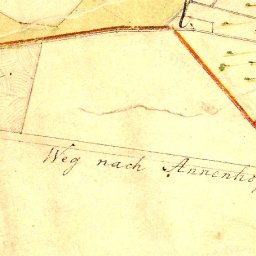 Weg nach Annenho